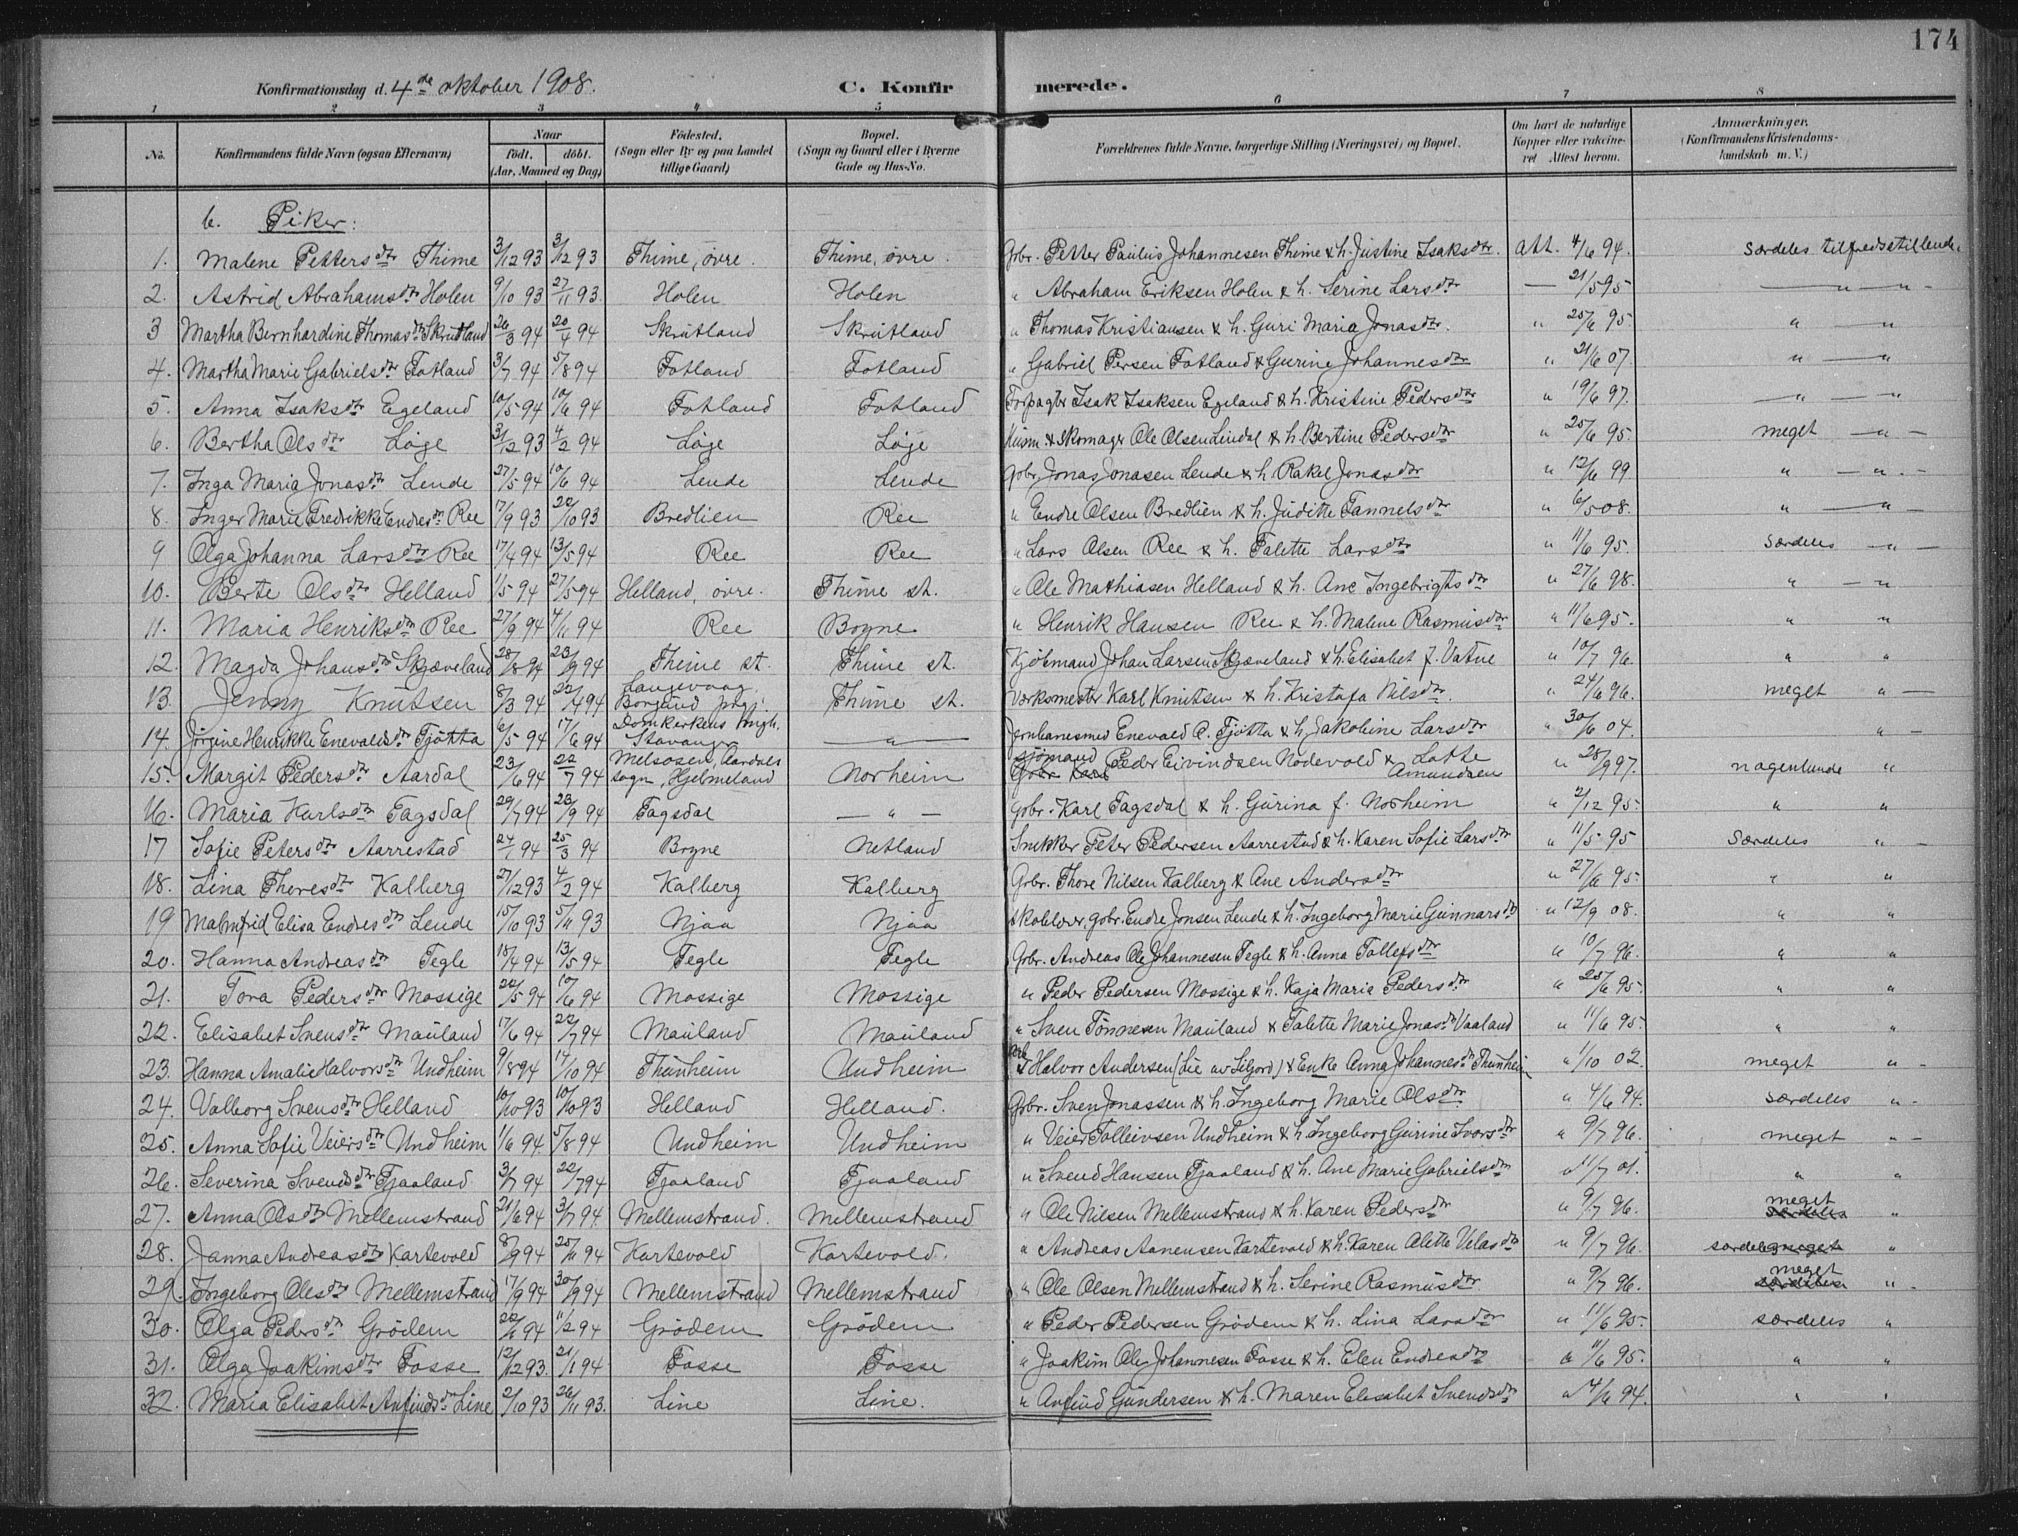 174
Konfirmationsdag d. 4de oktober 1908. C. Konfir merede.
1 2 3 4 5 6 7 8
No. Konfirmandens fulde Navn (ogsaa Efternavn) Naar födt. döbt. (Aar, Maaned og Dag) Födested. (Sogn eller By og paa Landet tillige Gaard) Bopæl. (Sogn og Gaard eller i Byerne Gade og Hus-No. Forældrenes fulde Navne, borgerlige Stilling (Næringsvei) og Bopæl. Om havt de naturlige Kopper eller vakcineret Attest herom. Anmærkninger. (Konfirmandens Kristendomskundskab m. V.)
b. Piker:
1. Malene Pettersdtr Thime 3/12 93 3/12 93 Thime, övre. Thime, övre. Gbr. Petter Paulus Johannesen Thime & h. Justine Isaksdtr. Att. 4/6 94. Særdeles tilfredsstillende
2. Astrid Abrahamsdtr Holen 9/10 93 27/11 93. Holen Holen " Abraham Eriksen Holen & h. Serine Larsdtr — 21/5 95 — " — " —
3 Martha Bernhardine Thomasdtr Skrutland 26/3 94 20/4 94 Skrutland Skrutland " Thomas Kristiansen & h. Guri Maria Jonasdtr. " 25/6 95 " — "
4. Martha Marie Gabrielsdtr Fotland 3/7 94 5/8 94 Fotland Fotland " Gabriel Persen Fotland & Gurine Johannesdtr " 21/6 07 " — "
5. Anna Isaksdtr Egeland 10/5 94 10/6 94 Fotland Fotland Forpagter Isak Isaksen Egeland & h. Kristine Pedersdtr " 19/6 97. — " — " —
6. Bertha Olsdtr Löge 31/12 93 4/2 94 Löge Löge Husm. & Skomager Ole Olsen Lindal & h. Bertine Pedersdtr " 25/6 95. meget — " —
7. Inga Maria Jonasdtr Lende 27/5 94 10/6 94 Lende Lende Gbr. Jonas Jonasen Lende & h. Rakel Jonasdtr " 12/6 99 " — " —
8. Inger Marie Fredrikke Endresdtr Ree 17/9 93 22/10 93 Bredlien Ree " Endre Olsen Bredlien & h. Juditte Tannelsdtr " 6/5 08. " — " —
9 Olga Johanna Larsdtr Ree 17/4 94 13/5 94 Ree Ree " Lars Olsen Ree & h. Talette Larsdtr " 11/6 95. Særdeles — " —
10. Berte Olsdtr Helland 1/5 94 27/5 94 Helland, övre. Thime st. " Ole Mathiasen Helland & h. Ane Ingebrigtsdtr " 27/6 98. " — "
11. Maria Henriksdtr Ree 27/9 94 4/11 94 Ree Bryne " Henrik Hansen Ree & h. Malene Rasmusdtr " 11/6 95. " "
12. Magda Johansdtr Skjæveland 28/8 94 23/9 94 Thime st. Thime st. Kjöbmand Johan Larsen Skjæveland & h. Elisabet f. Vatne " 10/7 96. " "
13. Jenny Knutsen 8/3 94 22/4 94 Langevaag, Borgund pgj. Thime st. Værksmester Karl Knutsen & h. Kristofa Nilsdtr. " 24/6 96. meget " —
14. Jörgine Henrikke Enevaldsdtr Tjötta 6/5 94 17/6 94 Domkirkens mgh. Stavanger — " — Jernbanesmed Enevald A. Tjötta & h. Jakobine Larsdtr " 30/6 04. " —
15. Margit Pedersdtr Aardal 23/6 94 22/7 94 Melsosen, Aardals sogn, Hjelmeland Norheim Sjömand Peder Eivindsen Nödevold & Lotte Amundsen " 28/9 97. nogenlunde "
16. Maria Karlsdtr Tagsdal 29/7 94 23/9 94 Tagsdal — " — Gbr. Karl Tagsdal & h. Gurina f. Norheim " 2/12 95. " "
17 Sofie Petersdtr Aarrestad 24/1 94 25/3 94 Bryne Netland Snekker Peter Pedersen Aarrestad & h. Karen Sofie Larsdtr " 11/5 95 Særdeles " —
18. Lina Thoresdtr Kalberg 27/12 93 4/2 94 Kalberg Kalberg Gbr. Thore Nilsen Kalberg & Ane Andersdtr " 27/6 95. " "
19 Malmfrid Elisa Endresdtr Lende 15/10 93 5/11 93 Njaa Njaa Skolelærer, gbr. Endre Jonsen Lende & h. Ingeborg Marie Gunnarsdtr " 12/9 08. " "
20. Hanna Andreasdtr Tegle 18/4 94 13/5 94 Tegle Tegle Gbr. Andreas Ole Johannesen Tegle & h. Anna Tollefsdtr " 10/7 96. " "
21. Tora Pedersdtr Mossige 22/5 94 10/6 94 Mossige Mossige " Peder Pedersen Mossige & h. Kaja Maria Pedersdtr " 25/6 95. " "
22. Elisabet Svensdtr Mauland 17/6 94 22/7 94 Mauland Mauland " Sven Tönnesen Mauland & Talette Marie Jonasdtr Vaaland " 11/6 95. " "
23. Hanna Amalie Halvorsdtr Undheim 9/8 94 14/10 94 Thunheim Undheim Halvor Andersen (Lie av Siljord) & Enke Anna Johannesdtr Thunheim " 1/10 02. meget "
24. Valborg Svensdtr Helland 10/10 93 10/10 93 Helland Helland. Gbr. Sven Jonassen & h. Ingeborg Marie Olsdtr " 4/6 94. Særdeles " -
25. Anna Sofie Veiersdtr Undheim 1/6 94. 5/8 94 Undheim Undheim " Veier Tolleivsen Undheim & h. Ingeborg Gurine Ivarsdtr " 9/7 96. meget " —
26. Severina Svendsdtr Tjaaland 3/7 94 22/7 94 Tjaaland Tjaaland " Svend Hansen Tjaaland & h. Ane Marie Gabrielsdtr " 11/7 01. " "
27. Anna Olsdtr Mellemstrand 21/6 94 3/7 94 Mellemstrand. Mellemstrand " Ole Nilsen Mellemstrand & h. Karen Pedersdtr " 9/7 96. meget særdeles "
28. Janna Andreasdtr Kartevold 8/9 94 25/11 94 Kartevold Kartevold. " Andreas Aanensen Kartevold & h. Karen Olette Velasdtr " 9/7 96. særdeles meget "
29. Ingeborg Olesdtr Mellemstrand 17/9 94 30/9 94 Mellemstrand Mellemstrand " Ole Olsen Mellemstrand & h. Serine Rasmusdtr " 9/7 96. meget særdeles "
30. Olga Pedersdtr Grödem 22/1 94 11/2 94 Grödem Grödem " Peder Pedersen Grödem & h. Lina Larsdtr " 11/6 95. særdeles "
31. Olga Joakimsdtr Fosse 12/12 93. 21/1 94 Fosse Fosse " Joakim Ole Johannesen Fosse & h. Elen Endresdtr " 11/6 95. " "
32. Maria Elisabet Anfindsdtr Line 2/10 93 26/11 93. Line Line. " Anfind Gundersen & h. Maren Elisabet Svendsdtr " 4/6 94. " "